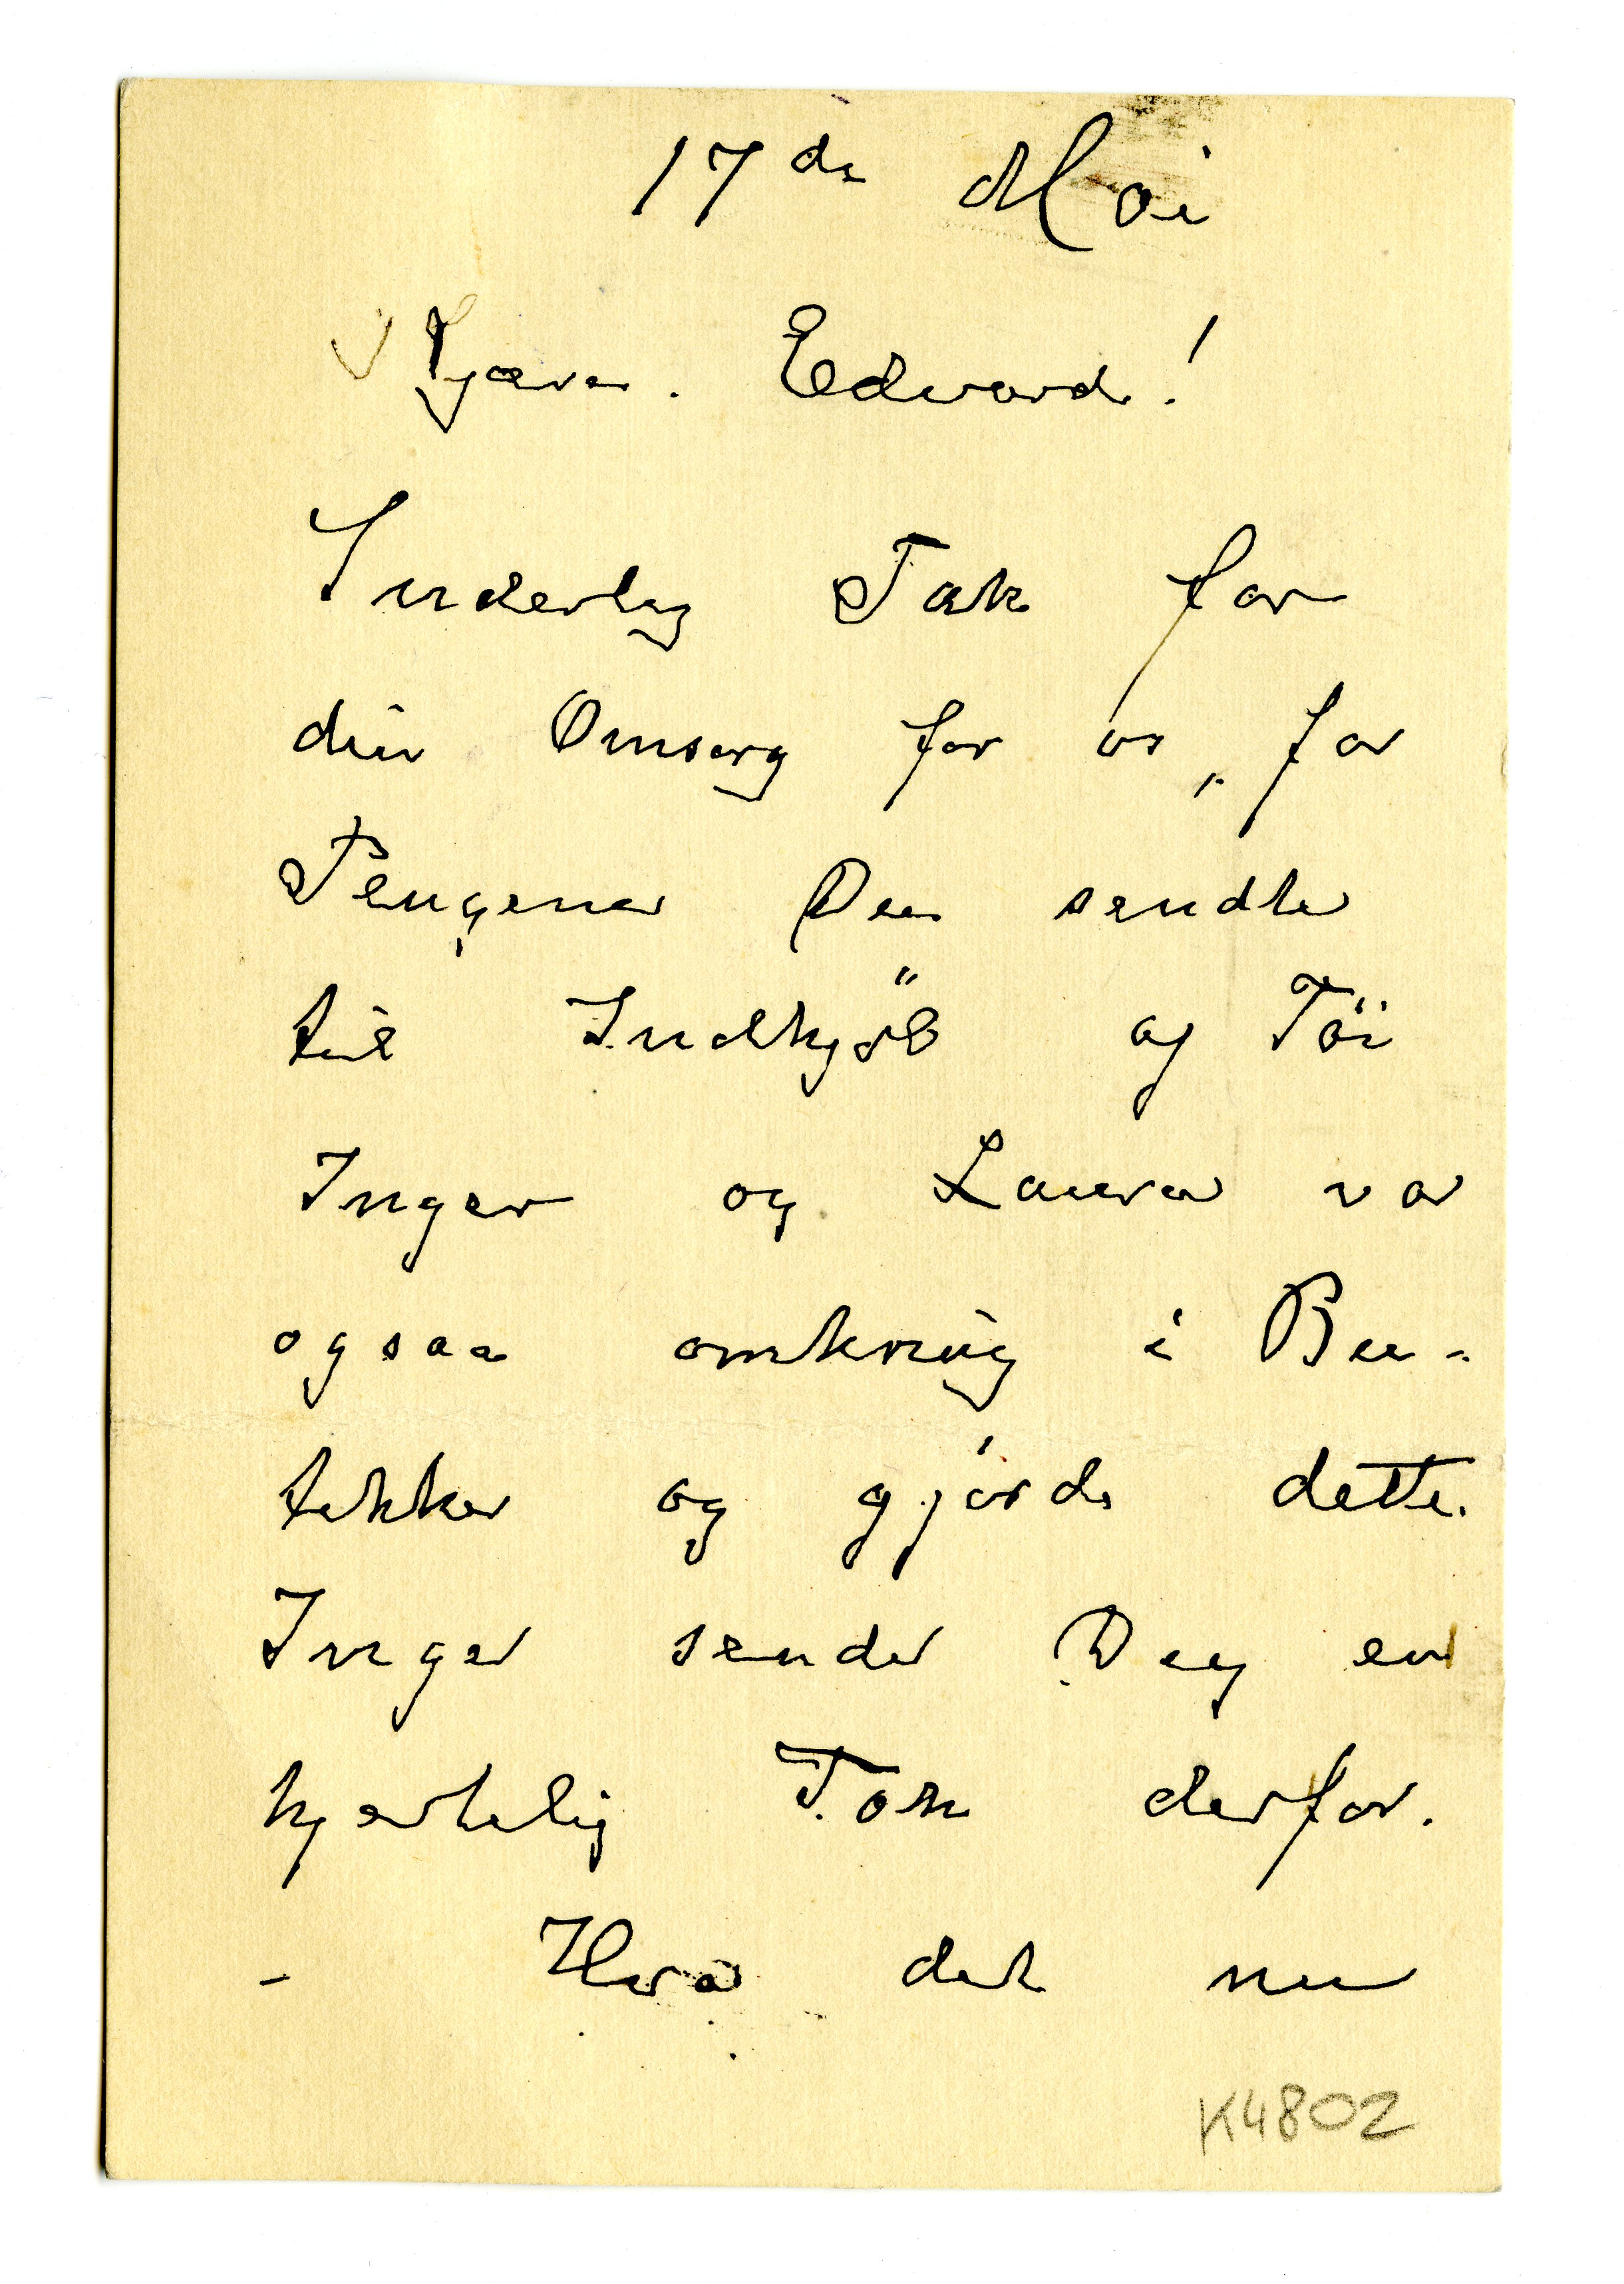 17de Mai
Kjære. Edvard!
Inderlig Tak for
din Omsorg for os, for
Pengene Du sendte
til Indkjøb af Tøi
Inger og Laura var
ogsaa omkring i Bu-
tikker og gjorde dette.
Inger sender Deg en
hjertelig Tak derfor.
- Hva det nu
K4802